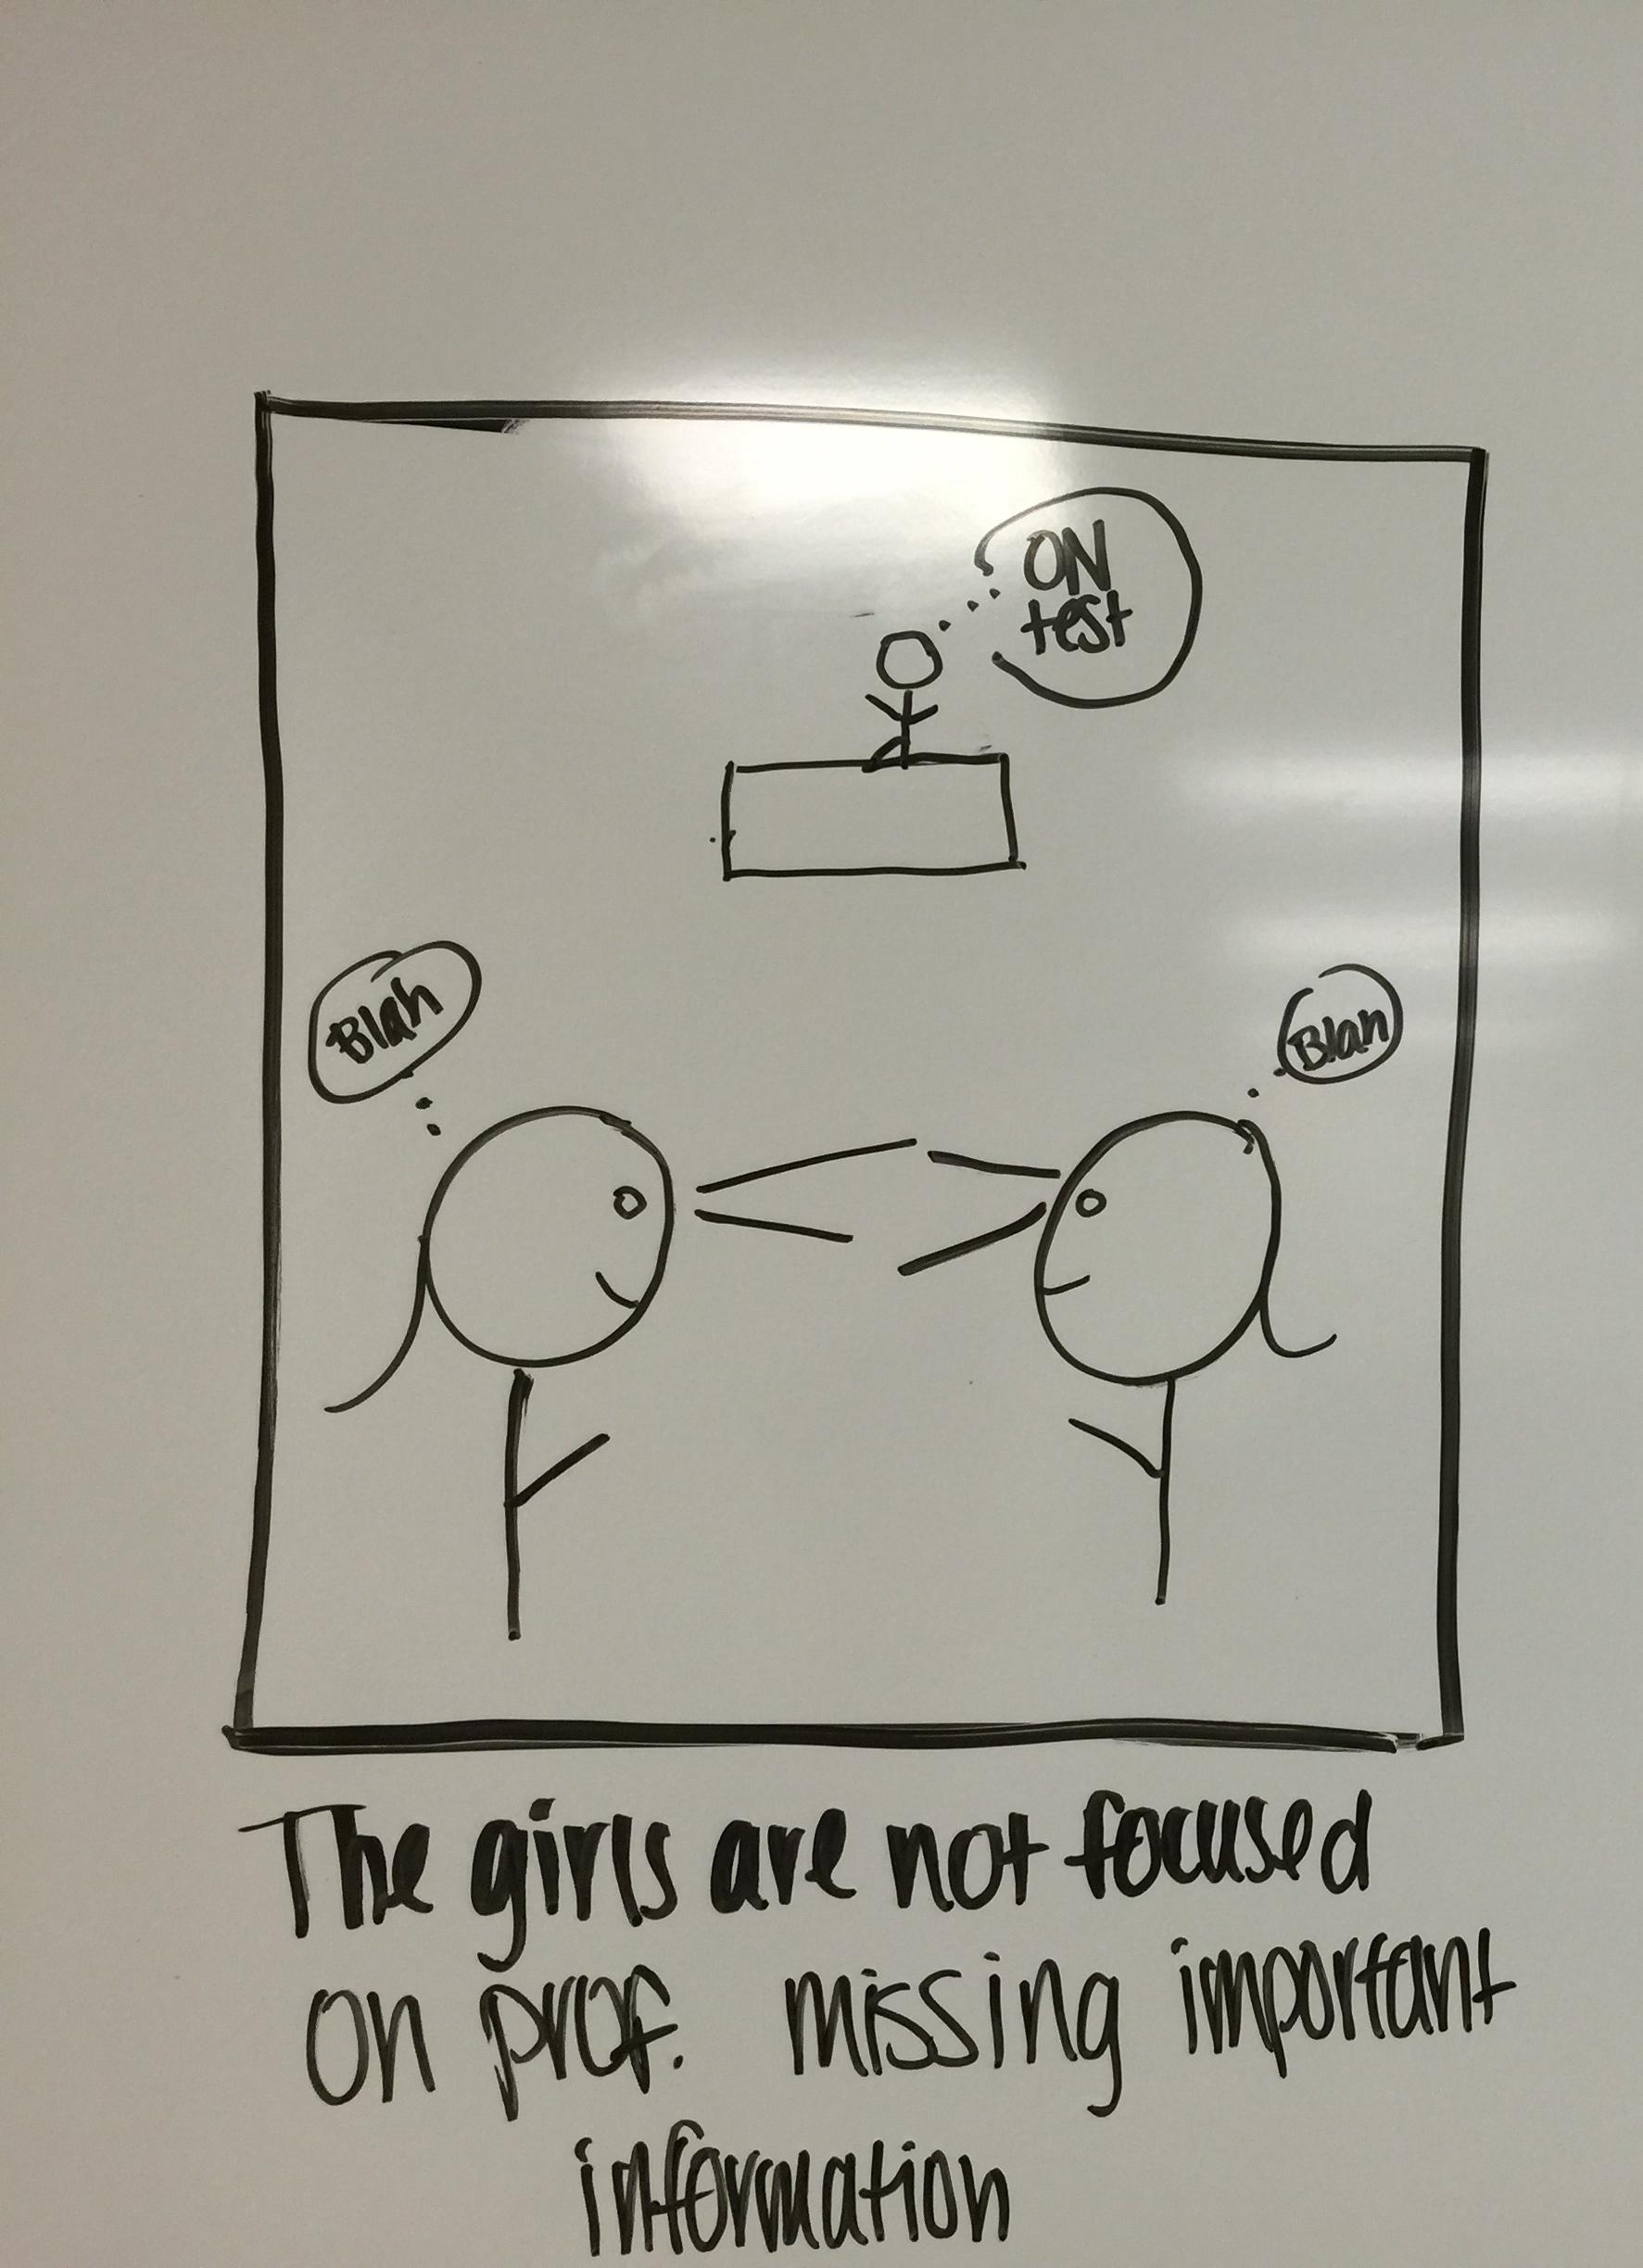 ON
test
Blah
Blah
The girls are not focused
on prof. missing important
information